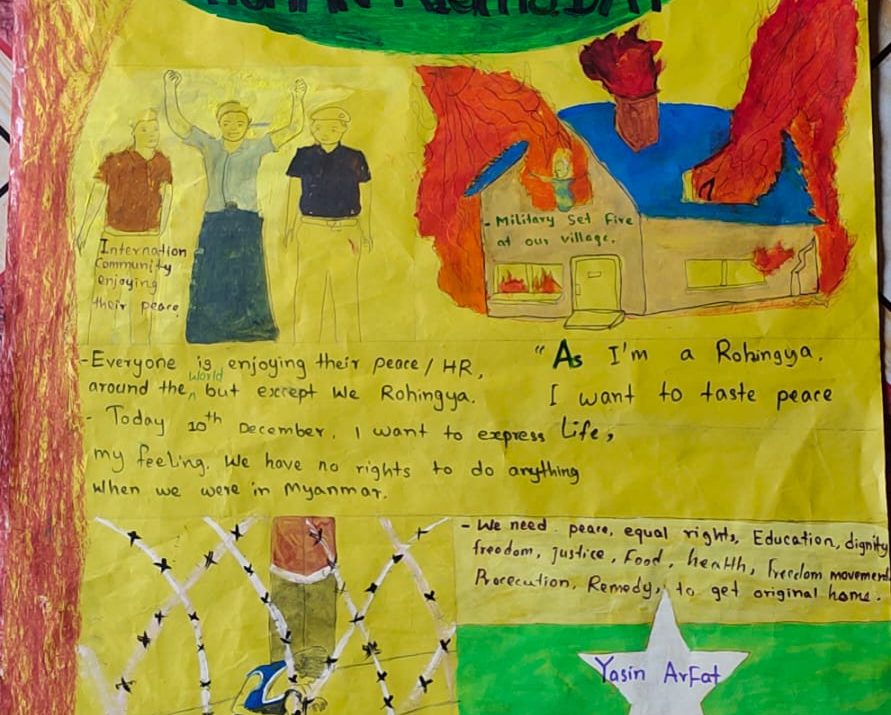 Internation
Community
enjoying
their peace.
- Military Set fire
at our village.
- Everyone is enjoying their peace / HR,
around the world but except We Rohingya.
- Today 10th December, I want to express
my feeling. We have no rights to do anything
When we were in Myanmar.
"As I'm a Rohingya,
I want to taste peace
Life,
- We need peace, equal rights, Education, dignity
freedom, justice, Food, health, freedom movement
Prosecution, Remedy, to get original home.
Yasin Arfat